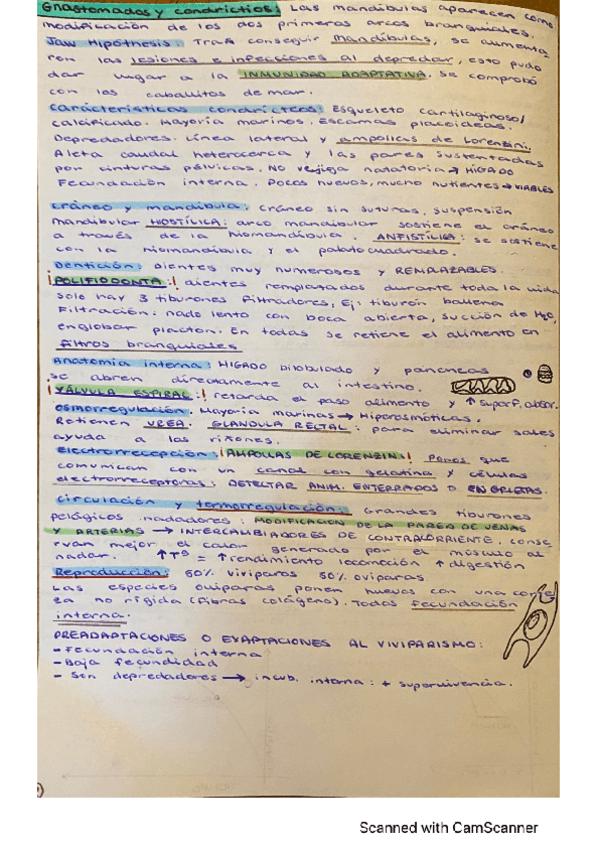 Gnastomados y condrictios: Las mandíbulas aparecen como
modificación de los dos primeros arcos branquiales.
Jaw Hipothesis: Tras conseguir mandíbulas, se aumenta
ron las lesiones e infecciones al depredar, esto pudo
dar lugar a la INMUNIDAD ADAPTATIVA. Se comprobó
con los caballitos de mar.
Características condricteos: Esqueleto cartilaginoso/
calcificado. Mayoría marinos. Escamas placoideas.
Depredadores. Línea lateral y ampollas de Lorenzini.
Aleta caudal heterocerca y las pares sustentadas
por cinturas pélvicas. No vejiga natatoria → HÍGADO
Fecundación interna. Pocos huevos, mucho nutientes → VIABLES
Cráneo y mandíbula: Cráneo sin suturas, suspensión
mandibular HIOSTÍLICA: arco mandibular sostiene el cráneo
a través de la hiomandíbula. ANFISTÍLICA: se sostiene
con la hiomandíbula y el palatocuadrado.
Dentición: Dientes muy numerosos y REMPLAZABLES.
¡POLIFIODONTA:! dientes remplazados durante toda la vida
solo hay 3 tiburones filtradores, Ej: tiburón ballena
Filtración: nado lento con boca abierta, succión de H₂O,
englobar placton. En todas se retiene el alimento en
filtros branquiales
Anatomía interna: HÍGADO bilobulado y páncreas
se abren directamente al intestino.
¡VÁLVULA ESPIRAL:! retarda el paso alimento y ↑ superf. absor.
Osmorregulación: Mayoría marinas → Hiperosmóticas.
Retienen UREA. GLÁNDULA RECTAL: para eliminar sales
ayuda a los riñones.
Electrorrecepción: ¡AMPOLLAS DE LORENZINI:! Poros que
comunican con un canal con gelatina y células
electrorreceptoras: DETECTAR ANIM. ENTERRADOS O EN GRIETAS.
Circulación y termorregulación: Grandes tiburones
pelágicos nadadores: MODIFICACIÓN DE LA PARED DE VENAS
Y ARTERIAS → INTERCAMBIADORES DE CONTRACORRIENTE. Conse
rvan mejor el calor generado por el músculo al
nadar. ↑Tª = ↑rendimiento locomoción ↑ digestión
Reproducción: 60% vivíparos 50% ovíparos
Las especies ovíparas ponen huevos con una corte
za no rígida (fibras colágeno). Todos fecundación
interna.
PREADAPTACIONES O EXAPTACIONES AL VIVIPARISMO:
- Fecundación interna
- Baja fecundidad
- Son depredadores → incub. interna: + supervivencia.
Scanned with CamScanner